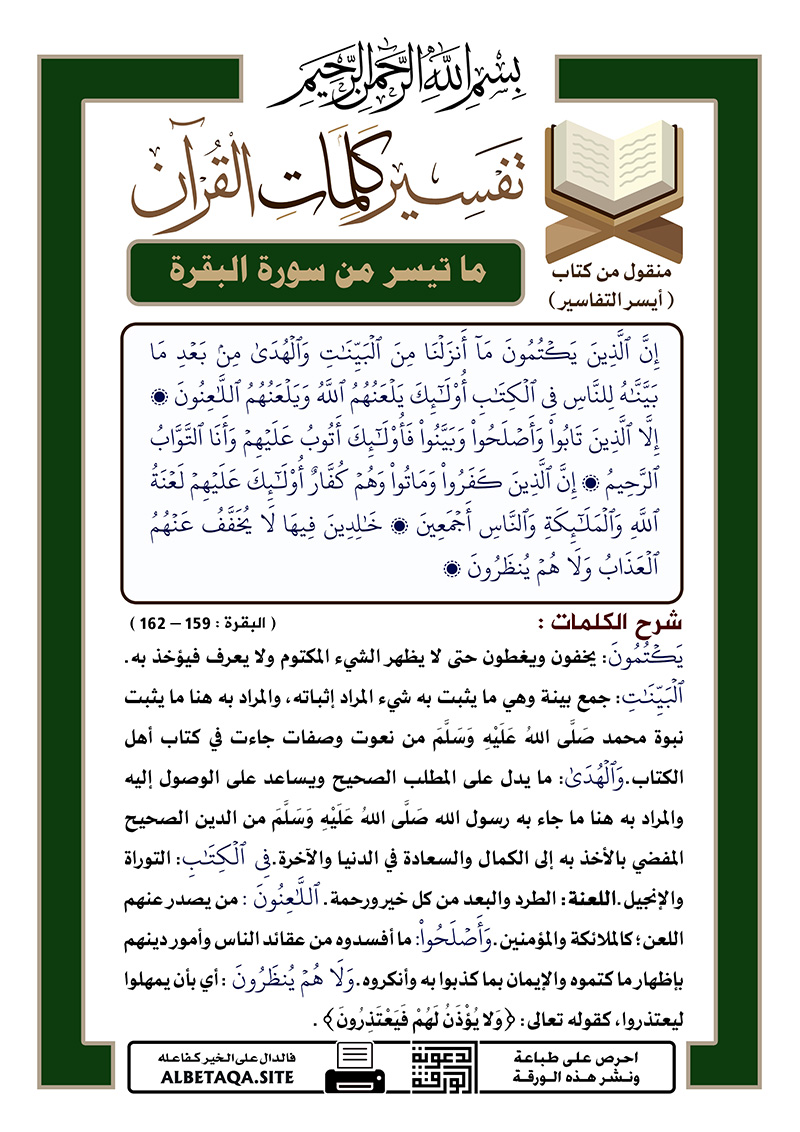 بِسْمِ اللَّهِ الرَّحْمَنِ الرَّحِيمِ
تَفْسِير كَلِمَاتِ القُرْآن
ما تيسر من سورة البقرة
منقول من كتاب
( أيسر التفاسير )
إِنَّ ٱلَّذِينَ يَكْتُمُونَ مَآ أَنزَلْنَا مِنَ ٱلْبَيِّنَٰتِ وَٱلْهُدَىٰ مِنۢ بَعْدِ مَا
بَيَّنَّٰهُ لِلنَّاسِ فِى ٱلْكِتَٰبِ أُو۟لَٰٓئِكَ يَلْعَنُهُمُ ٱللَّهُ وَيَلْعَنُهُمُ ٱللَّٰعِنُونَ ۞
إِلَّا ٱلَّذِينَ تَابُوا۟ وَأَصْلَحُوا۟ وَبَيَّنُوا۟ فَأُو۟لَٰٓئِكَ أَتُوبُ عَلَيْهِمْ وَأَنَا ٱلتَّوَّابُ
ٱلرَّحِيمُ ۞ إِنَّ ٱلَّذِينَ كَفَرُوا۟ وَمَاتُوا۟ وَهُمْ كُفَّارٌ أُو۟لَٰٓئِكَ عَلَيْهِمْ لَعْنَةُ
ٱللَّهِ وَٱلْمَلَٰٓئِكَةِ وَٱلنَّاسِ أَجْمَعِينَ ۞ خَٰلِدِينَ فِيهَا لَا يُخَفَّفُ عَنْهُمُ
ٱلْعَذَابُ وَلَا هُمْ يُنظَرُونَ ۞
شرح الكلمات :
( البقرة : 159 – 162 )
يَكْتُمُونَ: يخفون ويغطون حتى لا يظهر الشيء المكتوم ولا يعرف فيؤخذ به.
ٱلْبَيِّنَٰتِ: جمع بينة وهي ما يثبت به شيء المراد إثباته، والمراد به هنا ما يثبت
نبوة محمد صَلَّى اللهُ عَلَيْهِ وَسَلَّمَ من نعوت وصفات جاءت في كتاب أهل
الكتاب.وَٱلْهُدَىٰ: ما يدل على المطلب الصحيح ويساعد على الوصول إليه
والمراد به هنا ما جاء به رسول الله صَلَّى اللهُ عَلَيْهِ وَسَلَّمَ من الدين الصحيح
المفضي بالأخذ به إلى الكمال والسعادة في الدنيا والآخرة.فِى ٱلْكِتَٰبِ: التوراة
والإنجيل.اللعنة: الطرد والبعد من كل خير ورحمة. ٱللَّٰعِنُونَ : من يصدر عنهم
اللعن؛ كالملائكة والمؤمنين.وَأَصْلَحُوا۟: ما أفسدوه من عقائد الناس وأمور دينهم
بإظهار ما كتموه والإيمان بما كذبوا به وأنكروه.وَلَا هُمْ يُنظَرُونَ : أي بأن يمهلوا
ليعتذروا، كقوله تعالى: ﴿وَلا يُؤْذَنُ لَهُمْ فَيَعْتَذِرُونَ﴾ .
احرص على طباعة
ونشر هذه الورقة
الدعوية
الورقة
فالدال على الخير كفاعله
ALBETAQA.SITE